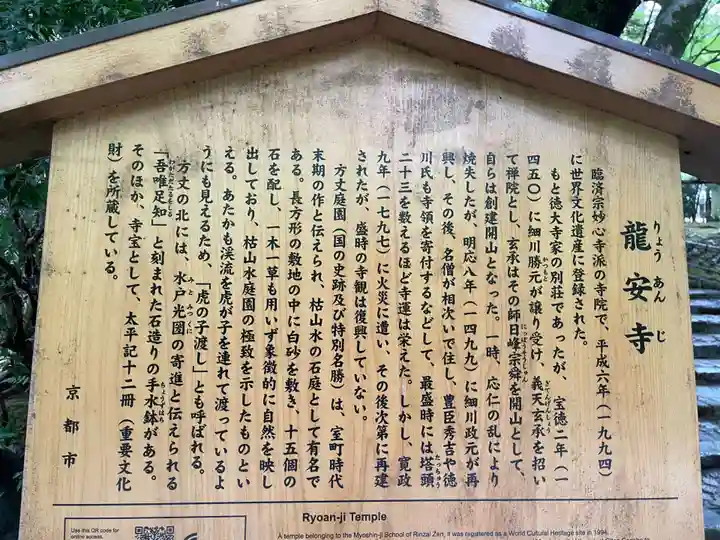 龍安寺
りょうあんじ
臨済宗妙心寺派の寺院で、平成六年(一九九四)
に世界文化遺産に登録された。
もと徳大寺家の別荘であったが、宝徳二年(一
四五〇)に細川勝元が譲り受け、義天玄承を招い
ぎてんげんしょう
て禅院とし、玄承はその師日峰宗舜を開山として、
にっぽうそうしゅん
自らは創建開山となった。一時、応仁の乱により
焼失したが、明応八年(一四九九)に細川政元が再
興し、その後、名僧が相次いで住し、豊臣秀吉や徳
川氏も寺領を寄付するなどして、最盛時には塔頭
たっちゅう
二十三を数えるほど寺運は栄えた。しかし、寛政
九年(一七九七)に火災に遭い、その後次第に再建
されたが、盛時の寺観は復興していない。
方丈庭園(国の史跡及び特別名勝)は、室町時代
末期の作と伝えられ、枯山水の石庭として有名で
ある。長方形の敷地の中に白砂を敷き、十五個の
石を配し、一木一草も用いず象徴的に自然を映し
出しており、枯山水庭園の極致を示したものとい
える。あたかも渓流を虎が子を連れて渡っているよ
うにも見えるため、「虎の子渡し」とも呼ばれる。
方丈の北には、水戸光圀の寄進と伝えられる
みとみつくに
「吾唯足知」と刻まれた石造りの手水鉢がある。
われただたるをしる
ちょうずばち
そのほか、寺宝として、太平記十二冊(重要文化
財)を所蔵している。
京都市
Ryoan-ji Temple
Use this QR code for
online access.
A temple belonging to the Myoshin-ji School of Rinzai Zen, it was registered as a World Cultural Heritage site in 1994.